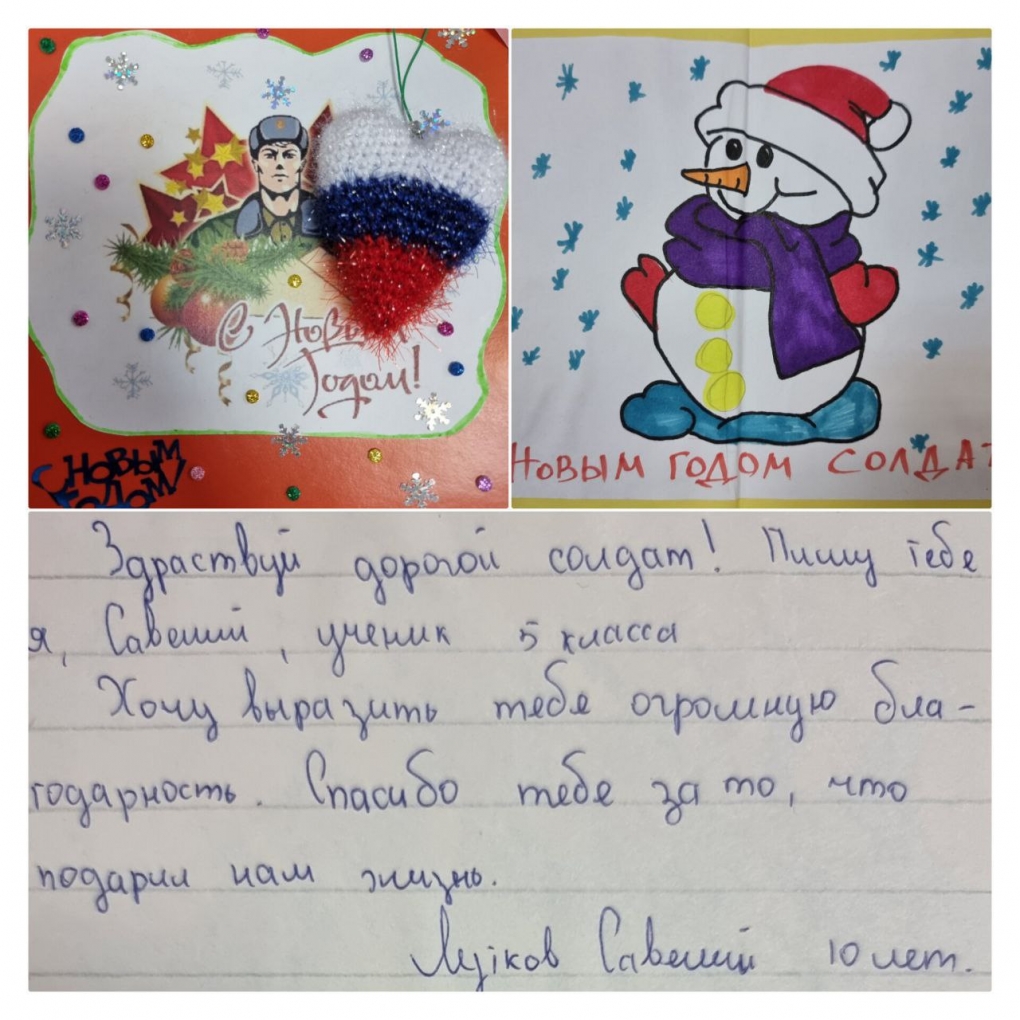 С Новым
Годом!
С НОВЫМ
ГОДОМ
НОВЫМ ГОДОМ СОЛДАТ
Здраствуй дорогой солдат! Пишу тебе
я, Савелий, ученик 5 класса
Хочу выразить тебе огромную бла-
годарность. Спасибо тебе за то, что
подарил нам жизнь.
Савелий 10 лет.